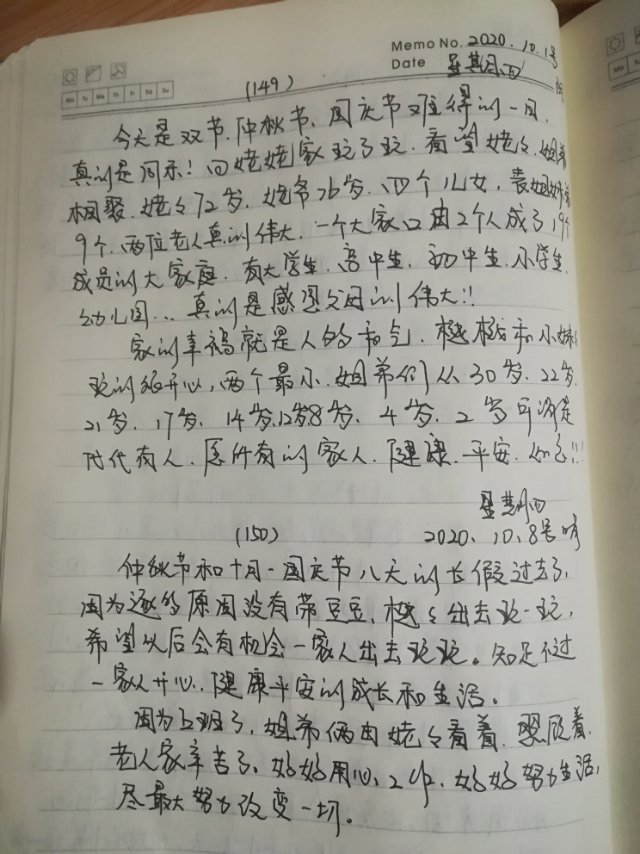 Memo No. 2020.10.1号
Date 星期四
Mo Tu We Th Fr Sa Su
(149)
今天是双节.仲秋节、国庆节难得的一日.
真的是同乐！回姥姥家玩了玩.看望姥々.姐弟
相聚.姥々72岁.姥爷76岁.四个儿女,表姐妹
9个.两位老人真的伟大.一个大家口由2个人成了19个
成员的大家庭.有大学生.高中生.初中生.小学生.
幼儿园...真的是感恩父母的伟大!!
家的幸福就是人的和气.樾樾和小妹
玩的很开心,两个最小.姐弟们从30岁.22岁.
21岁.17岁.14岁.12岁8岁.4岁.2岁可谓是
代代有人.愿所有的家人.健康.平安.如意!!!
星期四
(150)
2020.10.8号晴
仲秋节和十月一国庆节八天的长假过去了.
因为逐的原因没有带豆豆.樾々出去玩一玩,
希望以后会有机会一家人出去玩玩。知足不过
一家人开心.健康平安的成长和生活。
因为上班了,姐弟俩由姥々看着.照顾着.
老人家辛苦了.好好用心.工作.好好努力生活,
尽最大努力改变一切。